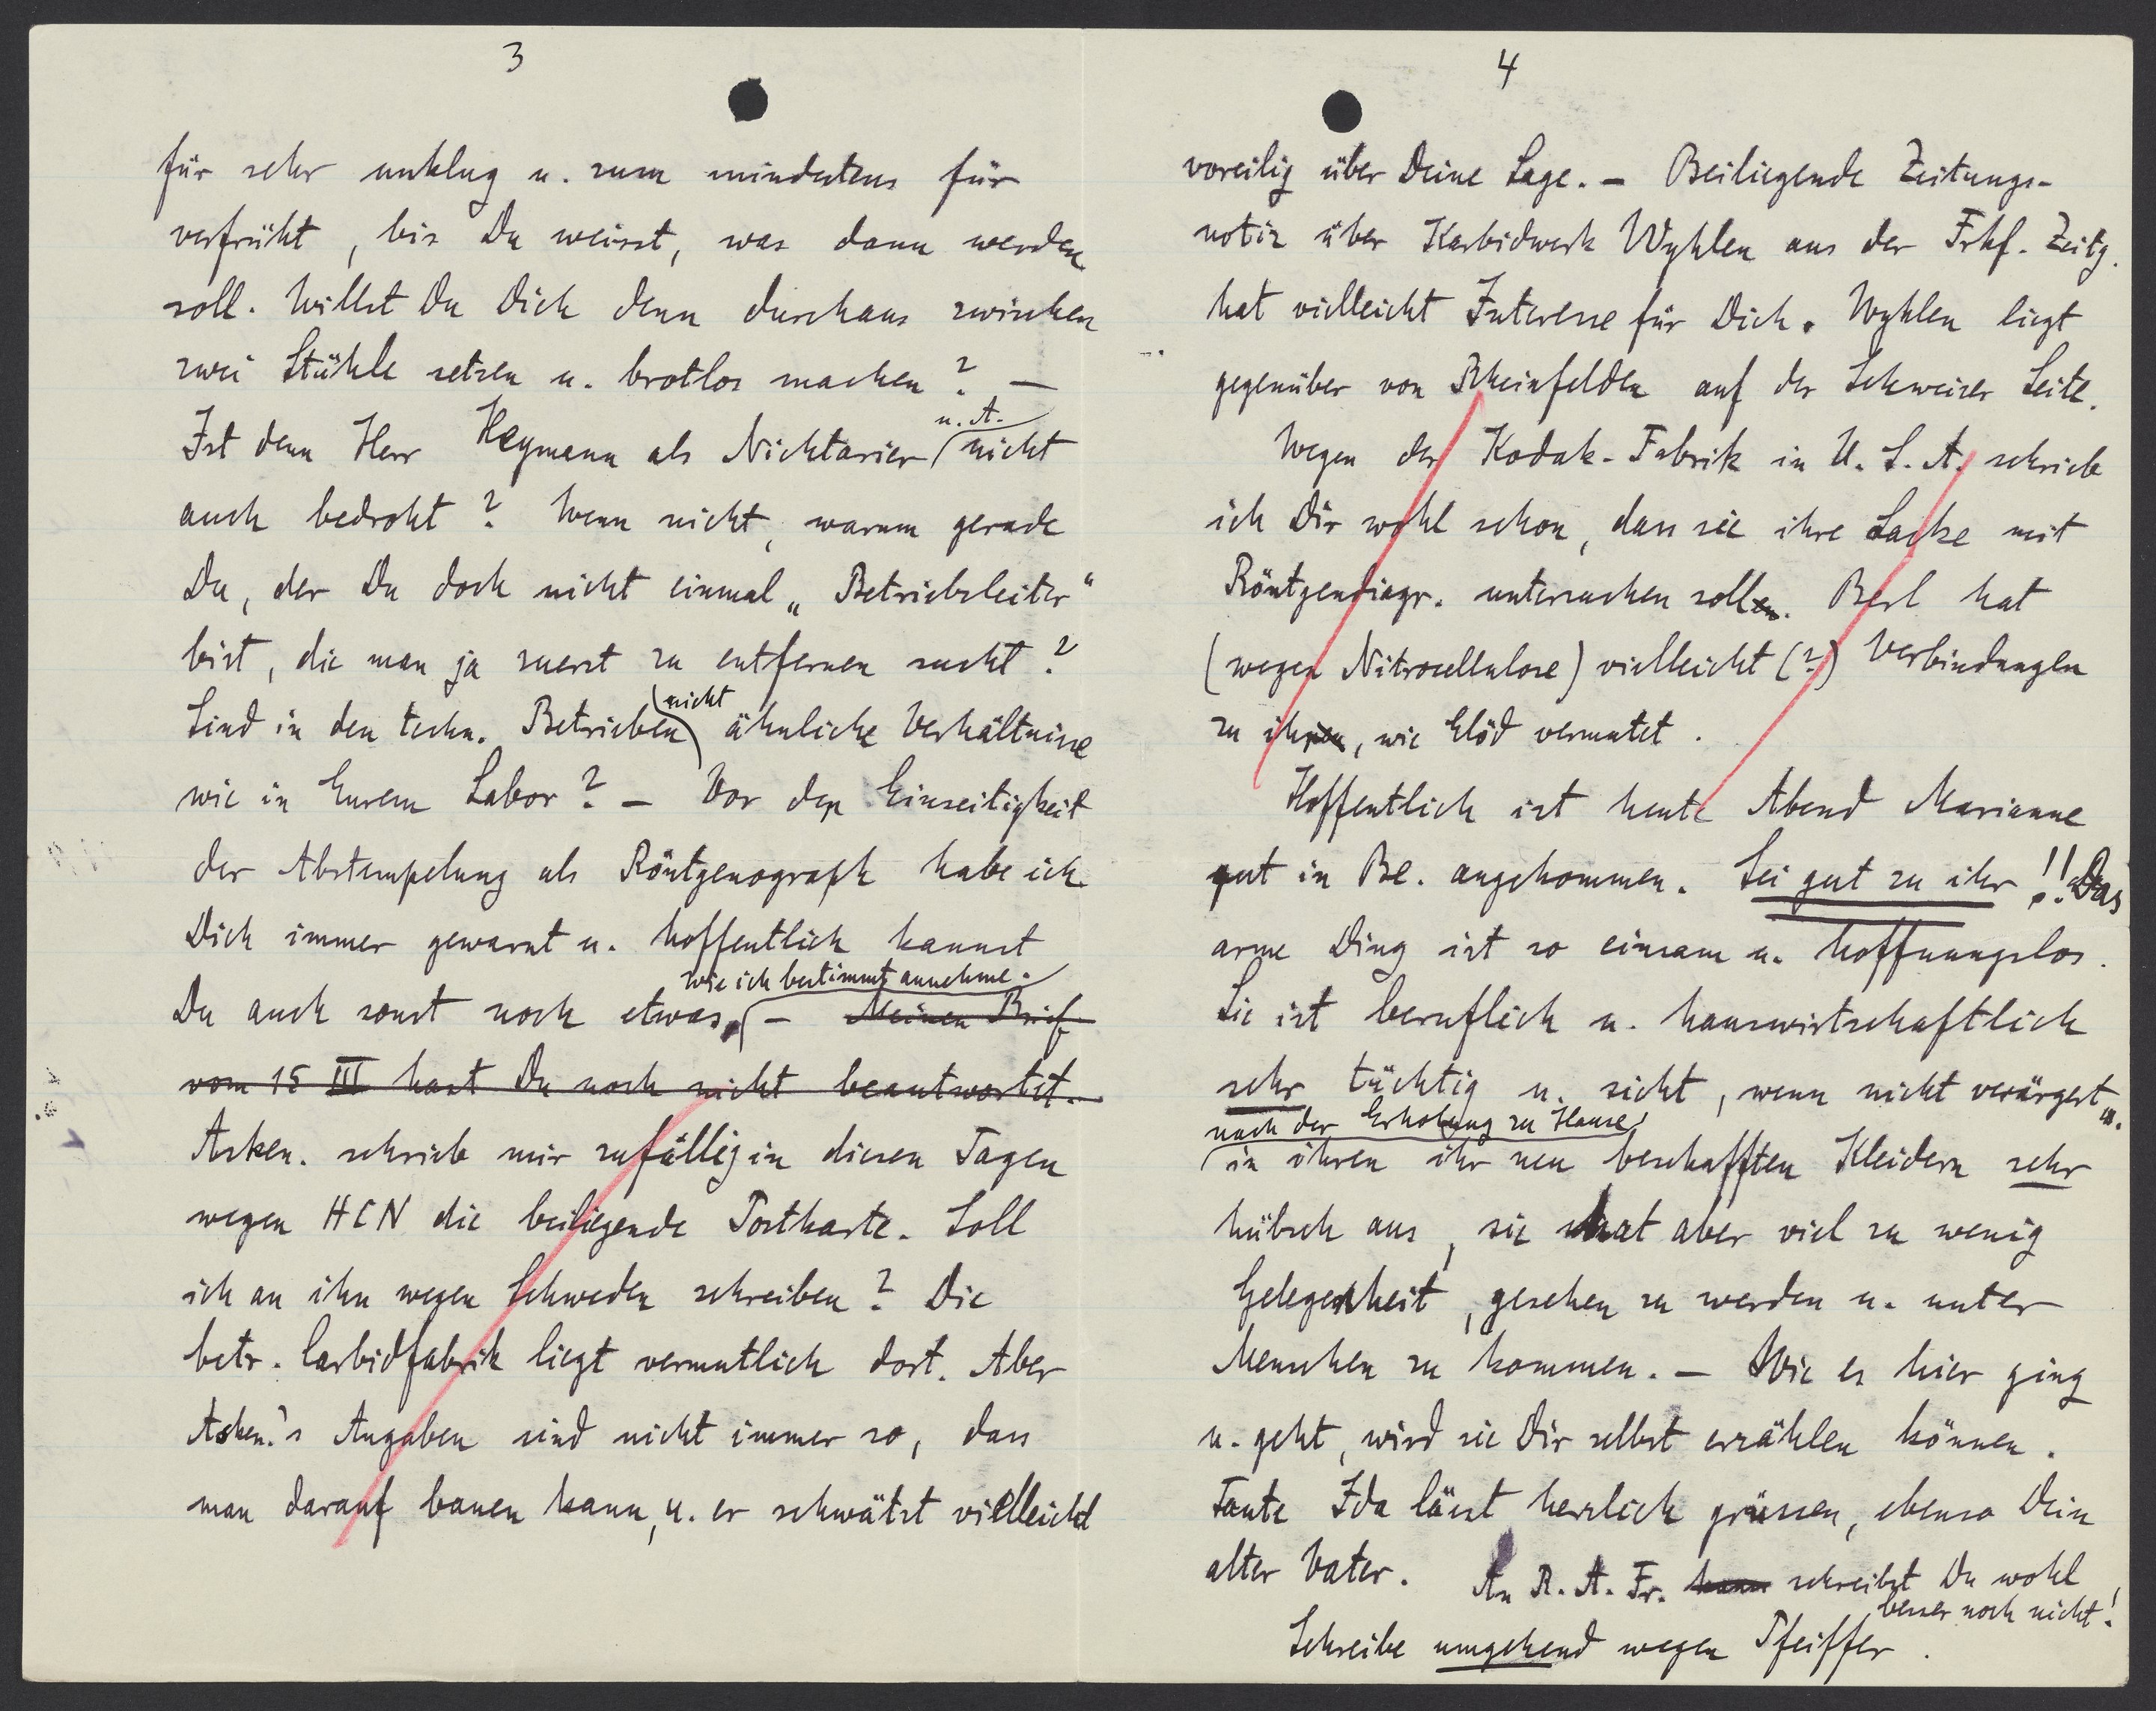 3
für sehr unklug u. zum mindestens für
verfrüht, bis Du weisst, was dann werden
soll. Willst Du Dich denn durchaus zwischen
zwei Stühle setzen u. brotlos machen? –
Ist denn Herr Heymann als Nichtarier u. A. nicht
auch bedroht? Wenn nicht, warum gerade
Du, der Du doch nicht einmal „Betriebsleiter“
bist, die man ja zuerst zu entfernen sucht?
Sind in den techn. Betrieben nicht ähnliche Verhältnisse
wie in Eurem Labor? – Vor der Einseitigkeit
der Abstempelung als Röntgenograph habe ich
Dich immer gewarnt u. hoffentlich kannst
Du auch sonst noch etwas, wie ich bestimmt annehme. – Meinen Brief
vom 15 III hast Du noch nicht beantwortet.
Asken. schrieb mir zufällig in diesen Tagen
wegen HCN die beiliegende Postkarte. Soll
ich an ihn wegen Schweden schreiben? Die
betr. Carbidfabrik liegt vermutlich dort. Aber
Asken.'s Angaben sind nicht immer so, dass
man darauf bauen kann, u. er schwätzt vielleicht
4
voreilig über Deine Lage. – Beiliegende Zeitungs-
notiz über Karbidwerk Wyhlen aus der Frkf. Zeitg.
hat vielleicht Interesse für Dich. Wyhlen liegt
gegenüber von Rheinfelden auf der Schweizer Seite.
Wegen der Kodak-Fabrik in U.S.A. schrieb
ich Dir wohl schon, dass sie ihre Lacke mit
Röntgendiagr. untersuchen sollen. Berl hat
(wegen Nitrocellulose) vielleicht (?) Verbindungen
zu ihnen, wie Clöd vermutet.
Hoffentlich ist heute Abend Marianne
gut in Be. angekommen. Sei gut zu ihr!! Das
arme Ding ist so einsam u. hoffnungslos.
Sie ist beruflich u. hauswirtschaftlich
sehr tüchtig u. sieht, wenn nicht verärgert u.
nach der Erholung zu Hause,
in ihren ihr neu beschafften Kleidern sehr
hübsch aus, sie hat aber viel zu wenig
Gelegenheit, gesehen zu werden u. unter
Menschen zu kommen. – Wie es hier ging
u. geht, wird sie Dir selbst erzählen können.
Tante Ida lässt herzlich grüssen, ebenso Dein
alter Vater. An R. A. Fr. kann schreibst Du wohl
besser noch nicht!
Schreibe umgehend wegen Pfeiffer.